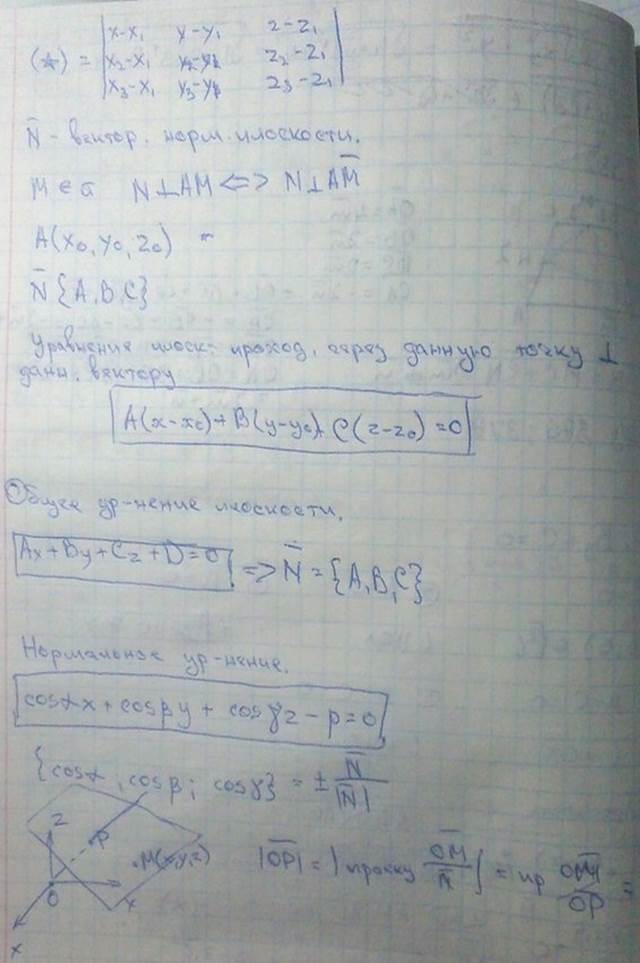 (*) = | x-x₁ y-y₁ z-z₁ |
| x₂-x₁ y₂-y₁ z₂-z₁ |
| x₃-x₁ y₃-y₁ z₃-z₁ |
N̄ - вектор. норм. плоскости.
M ∈ σ N⊥AM <=> N̄⊥AM̄
A(x₀, y₀, z₀)
N̄ {A, B, C}
Уравнение плоск. проход. через данную точку ⊥
данн. вектору
A(x-x₀)+B(y-y₀)+C(z-z₀)=0
Общее ур-нение плоскости.
Ax+By+Cz+D=0 => N̄ = {A, B, C}
Нормальное ур-нение.
cosαx + cosβy + cosγz - p = 0
{cosα, cosβ; cosγ} = ± N̄/|N̄|
z
P
M(x,y,z)
O
x
x
|OP̄| = | OM̄/N̄ | = пр OM̄/OP̄ =